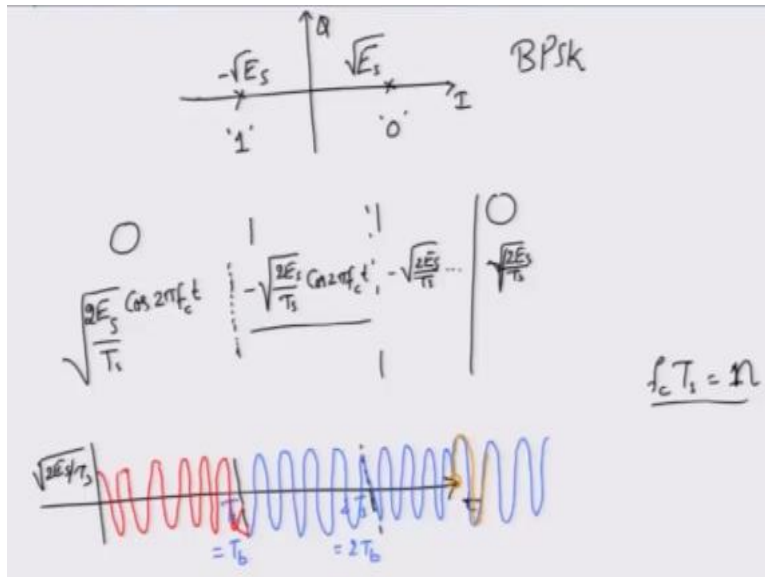 Q
-√Es √Es BPSK
I
'1' '0'
0 1 1 0
√(2Es/Ts) Cos 2πfct -√(2Es/Ts) Cos 2πfct -√(2Es/Ts) ... √(2Es/Ts)
fc Ts = n
√2Es/Ts
= Tb = 2Tb